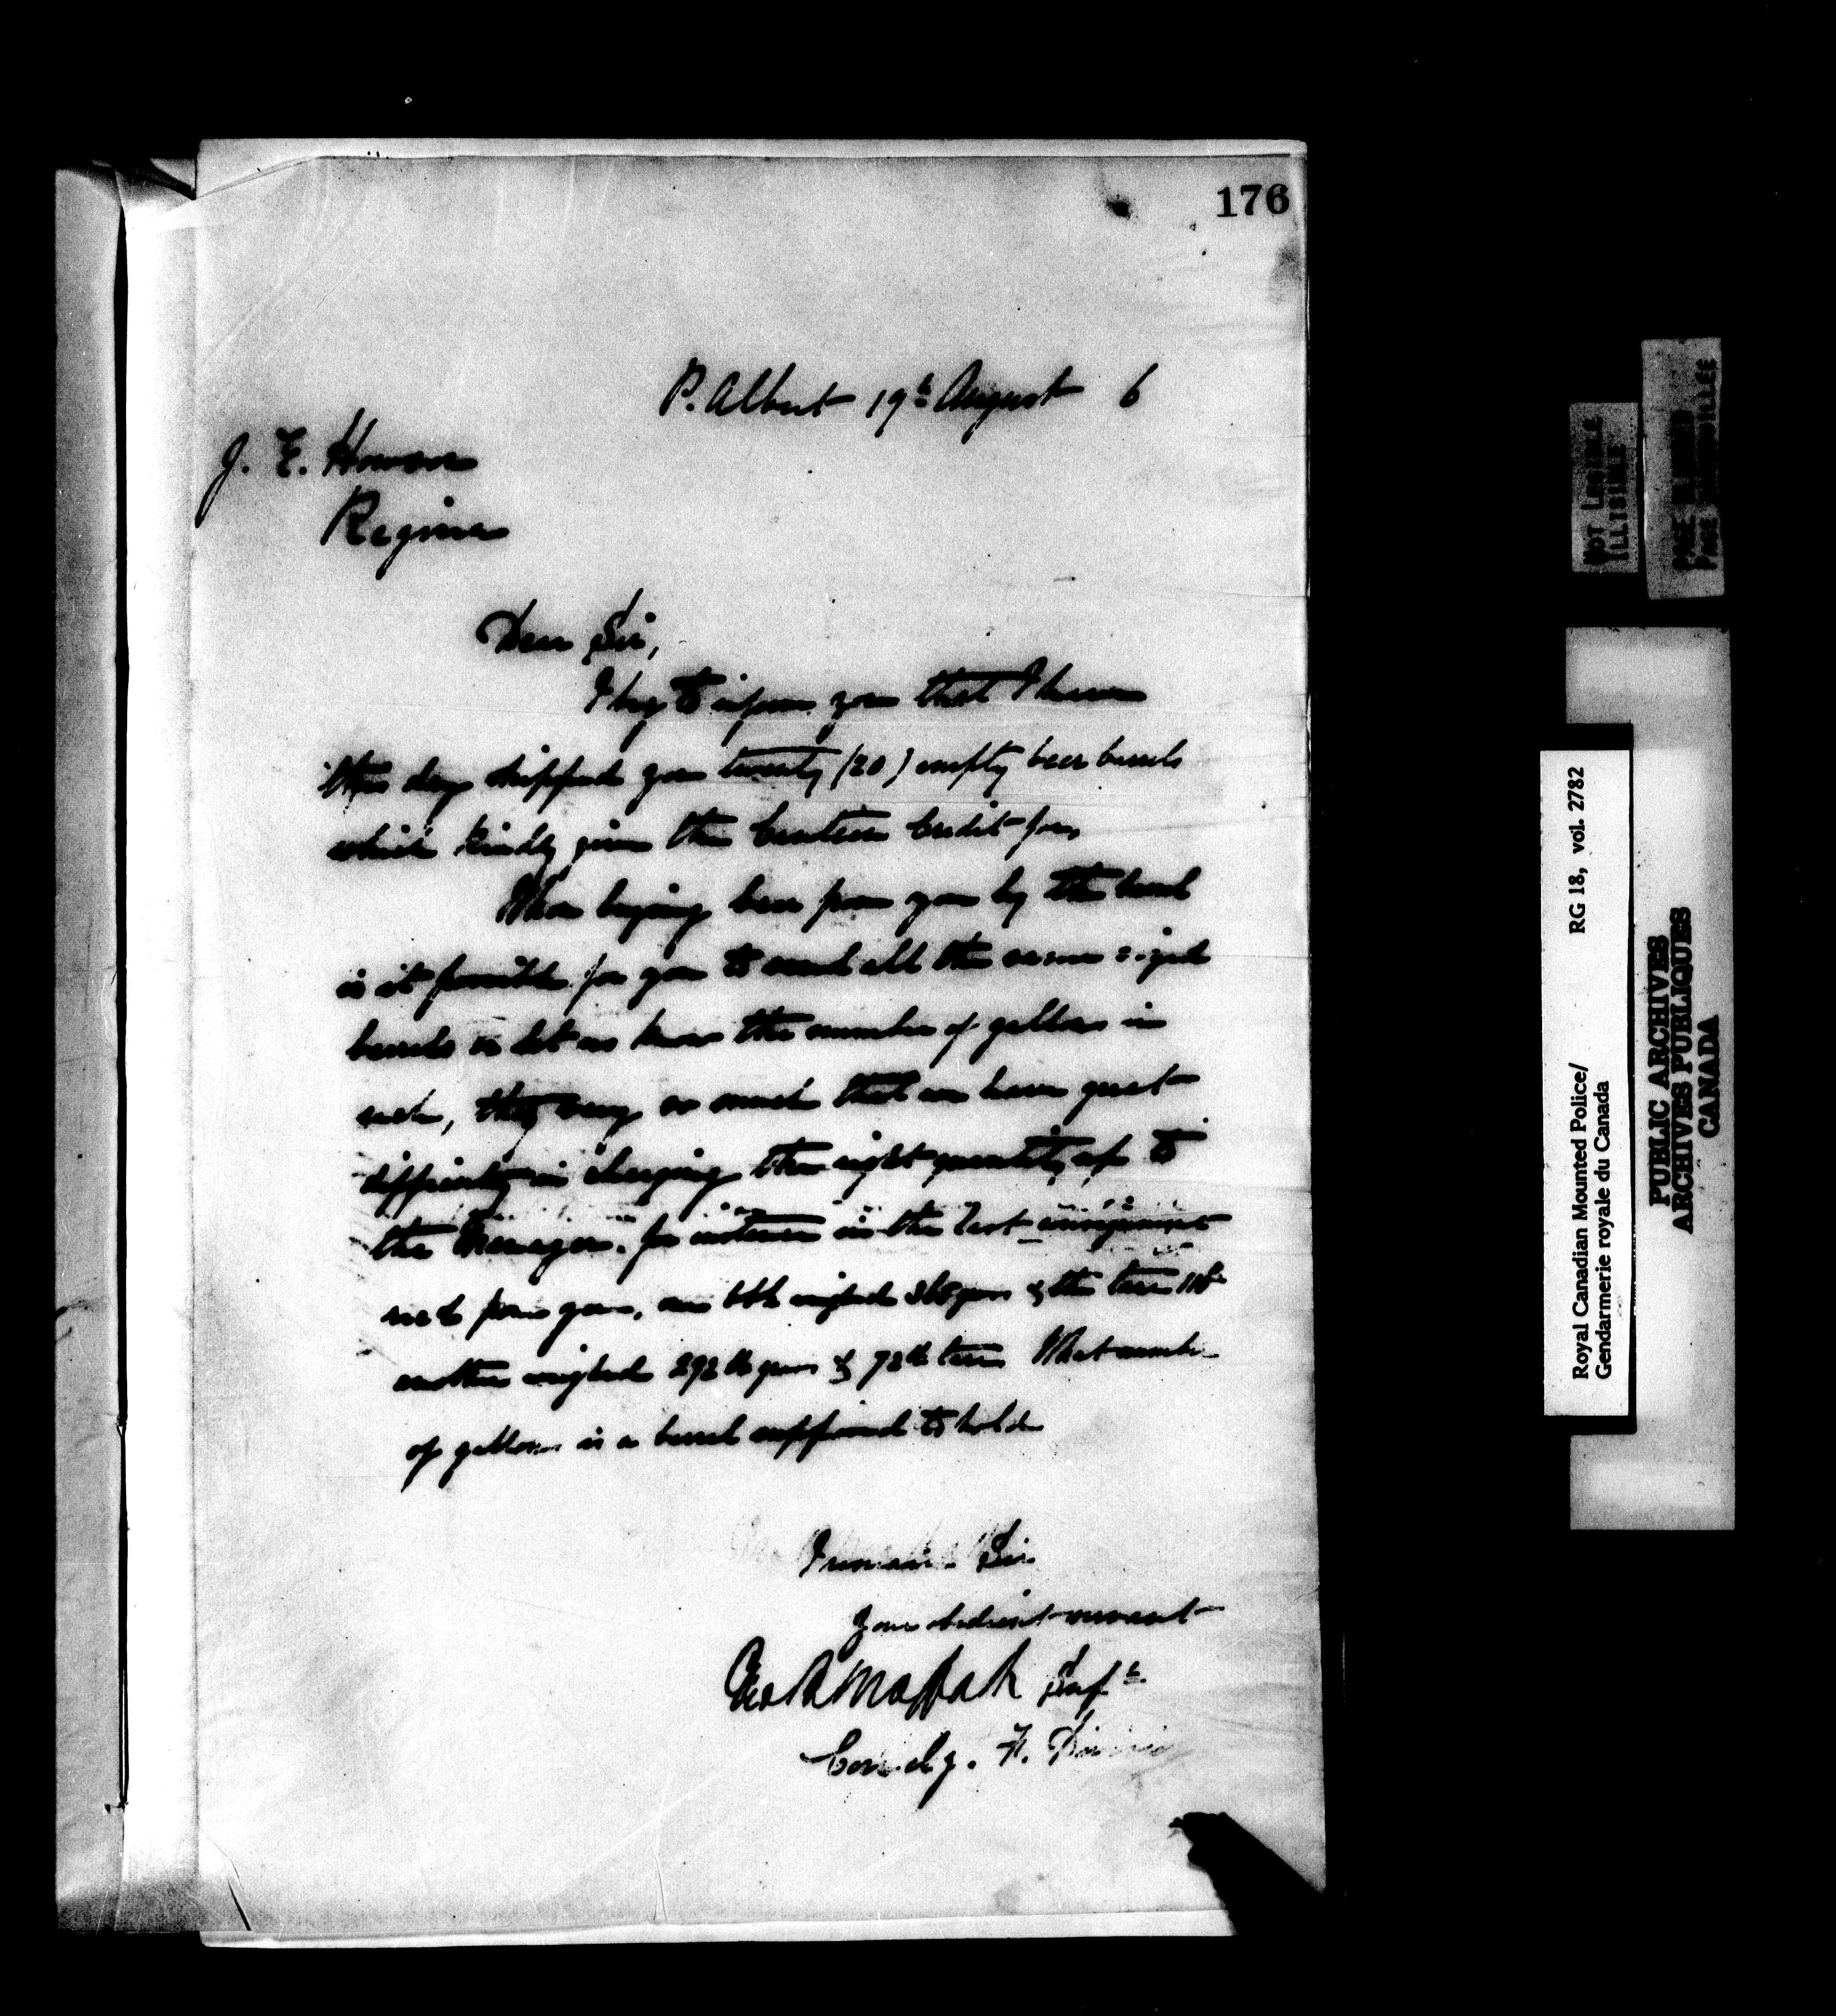 176
P. Albert 19th August 6
J. E.
Regina
Dear Sir,
I beg to inform you that I have
this day shipped you twenty (20) empty beer barrels
which kindly give the Canteen Credit for,
When buying beer from you by the barrel
is it possible for you to send all the same sized
barrels or let us know the number of gallons in
each, they vary so much that we have great
difficulty in charging the right quantity up to
the Manager. for instance in the last
from you, one bbl weighed gross & the tare
another weighed 292 lb gross & 72 lb tare What number
of gallons is a barrel supposed to hold
I remain Sir
Your obedient servant
Geo Moffatt Supt
Comdg. F. Division
NOT LEGIBLE
ILLISIBLE
Royal Canadian Mounted Police/ RG 18, vol. 2782
Gendarmerie royale du Canada
PUBLIC ARCHIVES
ARCHIVES PUBLIQUES
CANADA